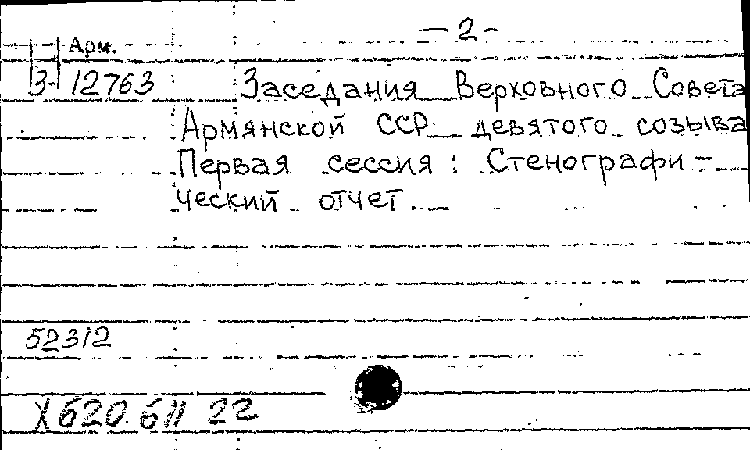 — 2 -
Арм.
3- 12763 Заседания Верховного Совета
Армянской ССР девятого созыва
Первая сессия: Стенографи-
ческий отчет.
52312
X620.611 22